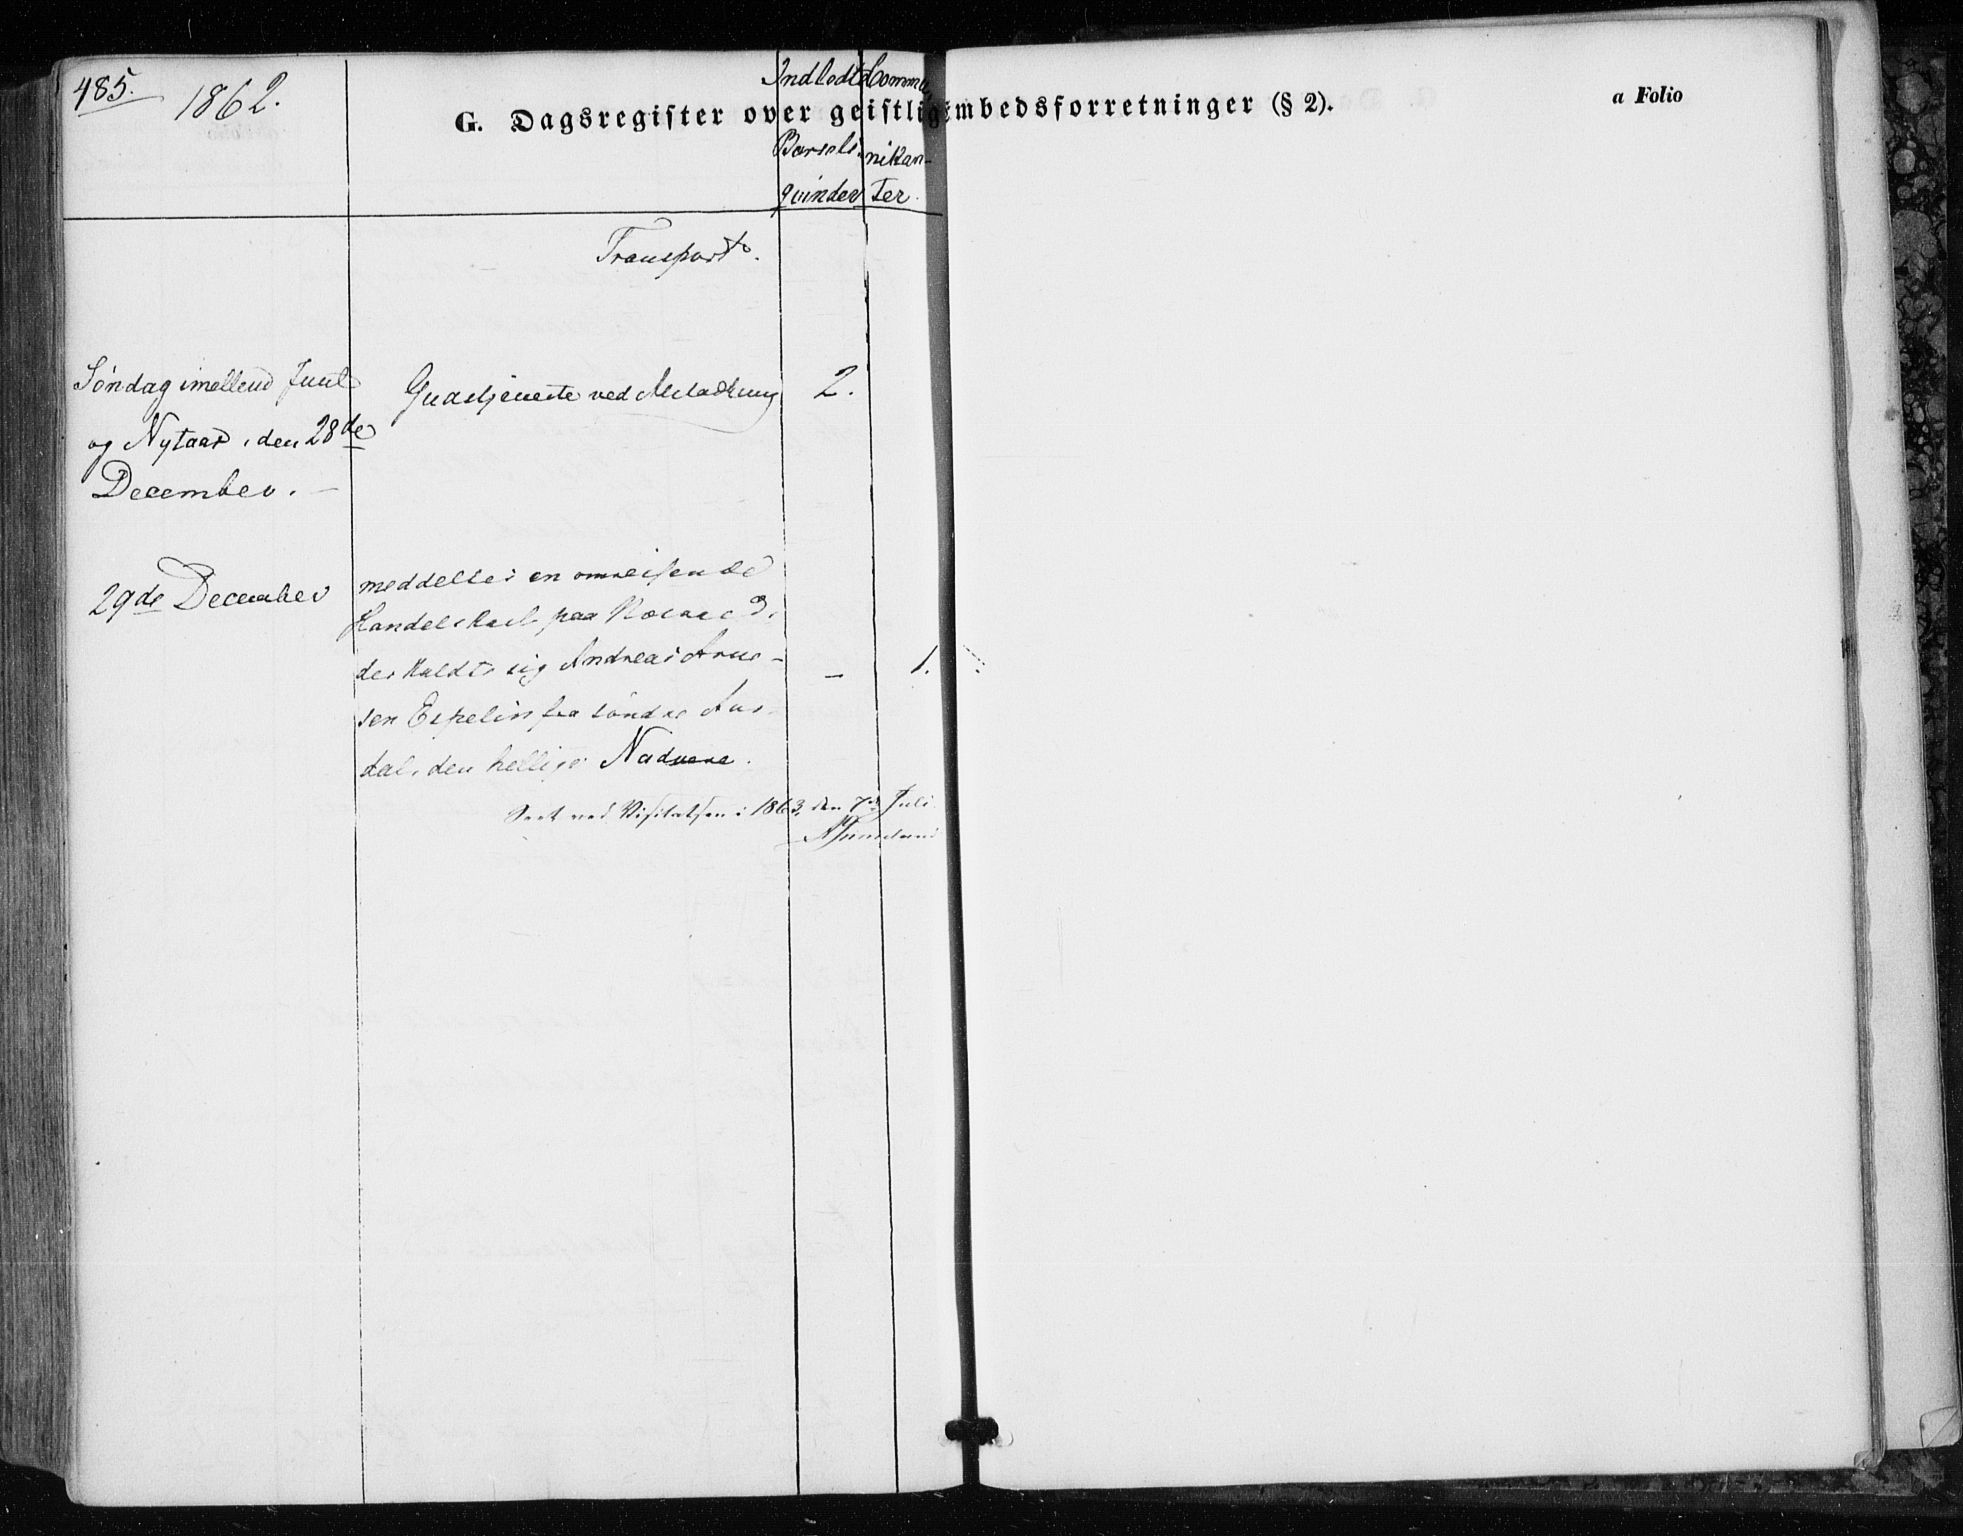 485.
1862.
G. Dagsregister over geistlig
mbedsforretninger (§ 2).
a Folio
Indledte
Barsels-
qvinder
Commu-
nikan-
ter.
Transport.
Søndag imellem Juul
og Nytaar, den 28de
December.
Gudstjeneste ved
2.
29de December
meddeltes en omreisende
Handelskarl paa
der kaldte sig Andreas Arne-
sen Espelin fra søndre Aur-
dal, den hellige Nadvere.
– 1.
Seet ved Visitatsen i 1863, den 7de Juli.